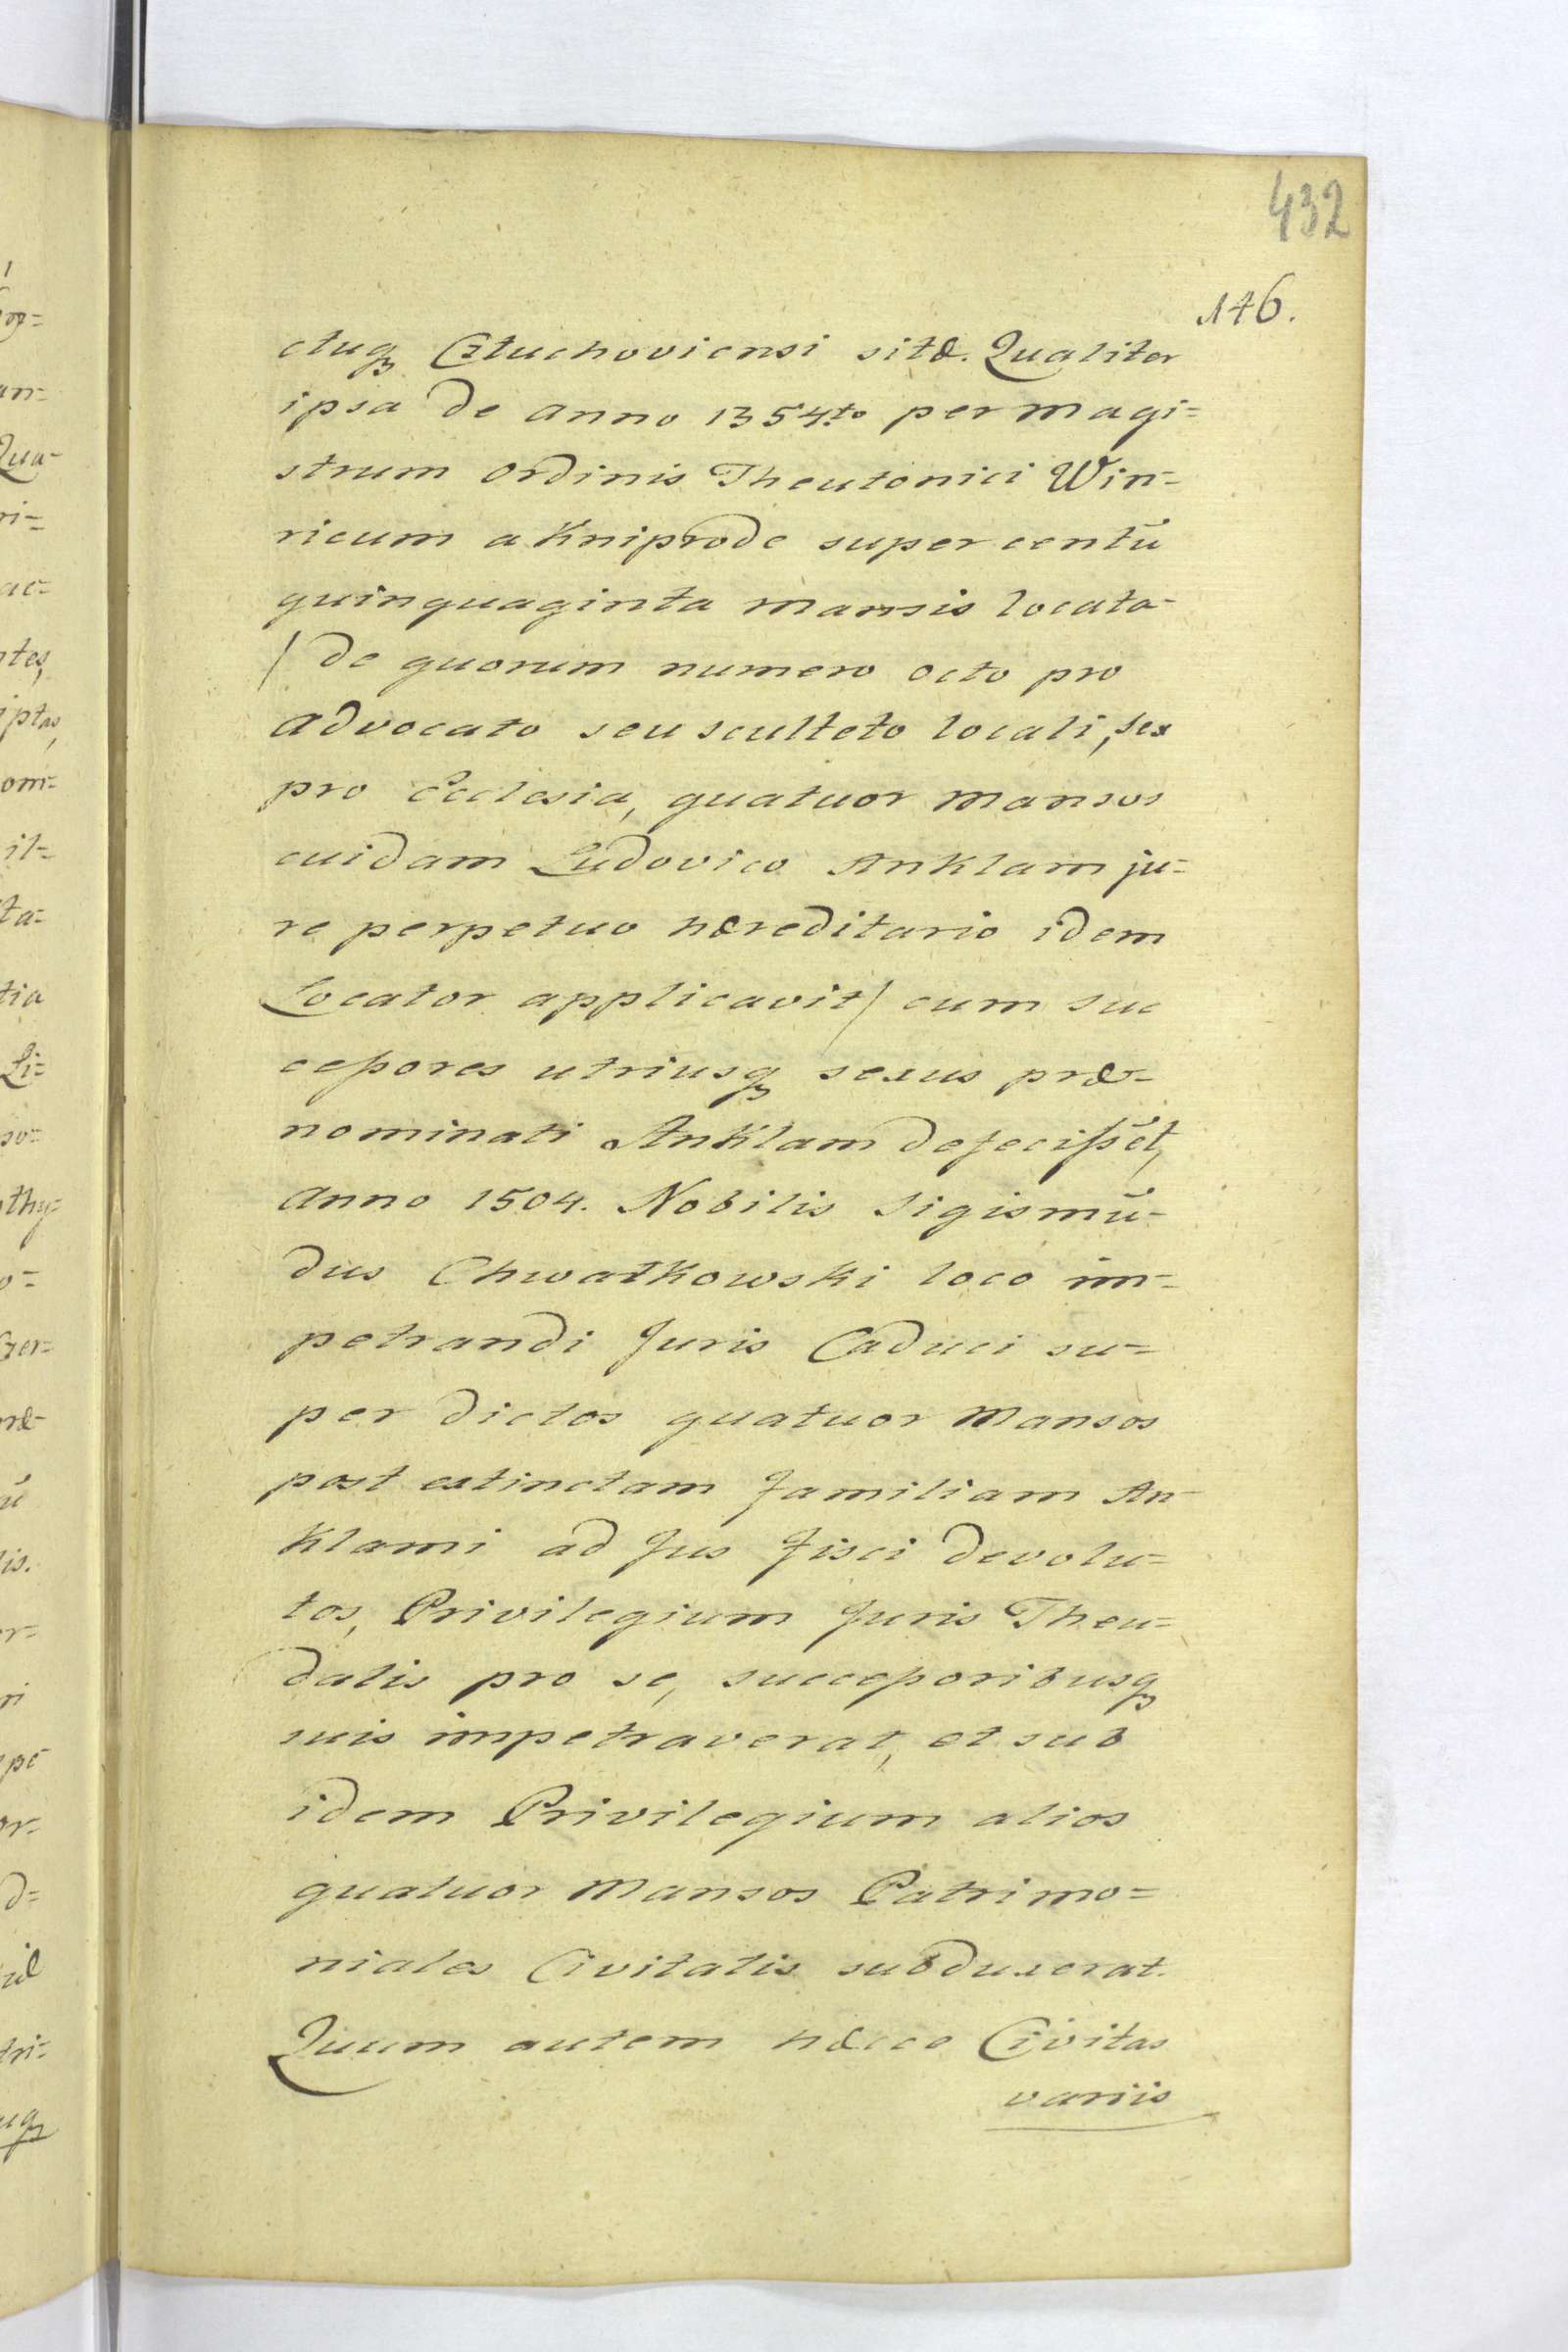 432
146.
ctuq Człuchoviensi sitæ. Qualiter
ipsa de anno 1354to per Magi=
strum Ordinis Theutonici Win=
ricum a Kniprode super centū
quinquaginta mansis locata
/ de quorum numero octo pro
Advocato seu sculteto locali, sex
pro Ecclesia, quatuor mansos
cuidam Ludovico Anklam ju=
re perpetuo hæreditario idem
Locator applicavit / cum suc
cessores utriusq sexus præ-
nominati Anklam defecissēt,
Anno 1504. Nobilis Sigismū-
dus Chwałkowski loco im=
petrandi Juris Caduci su=
per dictos quatuor Mansos
post extinctam familiam An-
klami ad Jus fisci devolu=
tos, Privilegium Juris Theu=
dalis pro se, successoribusq
suis impetraverat, et sub
idem Privilegium alios
quatuor Mansos Patrimo=
niales Civitatis subduxerat.
Quum autem hæcce Civitas
variis